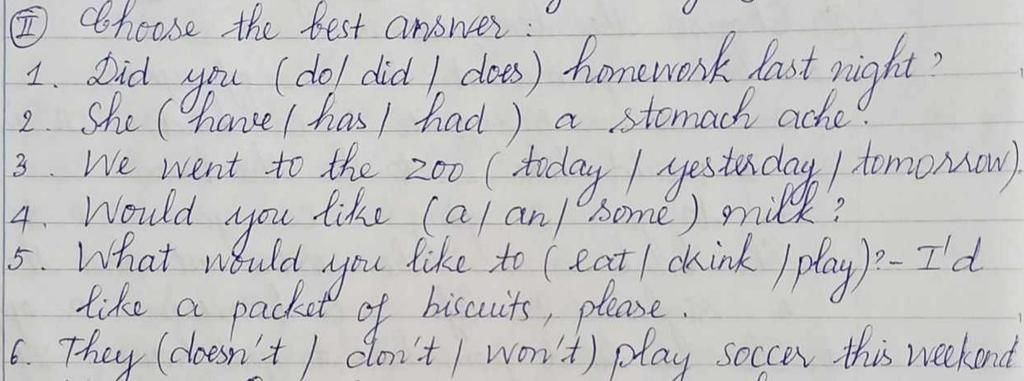 II Choose the best answer :
1. Did you (do/ did / does) homework last night ?
2. She (have / has / had ) a stomach ache.
3. We went to the zoo ( today / yesterday / tomorrow).
4. Would you like (a/ an/ some ) milk ?
5. What would you like to ( eat / dkink / play)?- I'd
like a packet of biscuits, please.
6. They (doesn't / don't / won't) play soccer this weekend